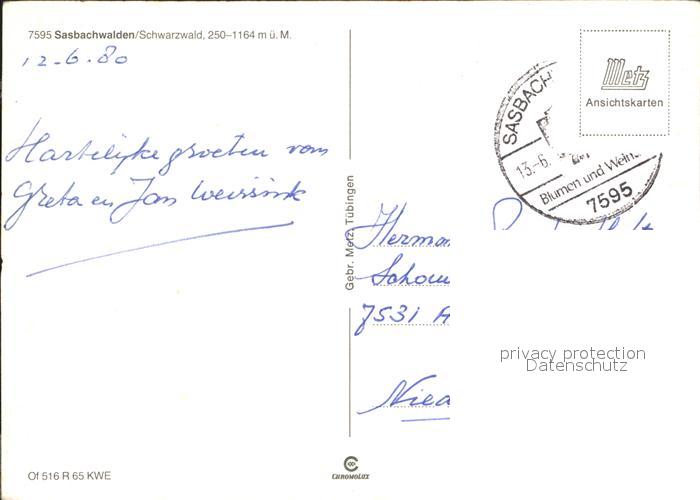 7595 Sasbachwalden/Schwarzwald, 250–1164 m ü. M.
12-6.80
Hartelijke groeten van
Greta en Jan Weissink
Gebr. Metz, Tübingen
Metz
Ansichtskarten
SASBACH
13.-6.
Blumen und Wein
7595
Herman
Schou
7531 A
Nied
privacy protection
Datenschutz
Of 516 R 65 KWE
CHROMOLUX